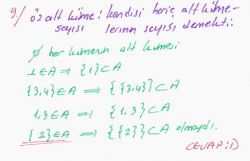 9/ öz alt küme: kendisi hariç alt küme-
sayısı lerinin sayısı demekti.
∅ her kümenin alt kümesi
1 ∈ A ⇒ {1} ⊂ A
{3,4} ∈ A ⇒ {{3,4}} ⊂ A
1,3 ∈ A ⇒ {1,3} ⊂ A
{2} ∈ A ⇒ {{2}} ⊂ A olmalıydı.
CEVAP: D